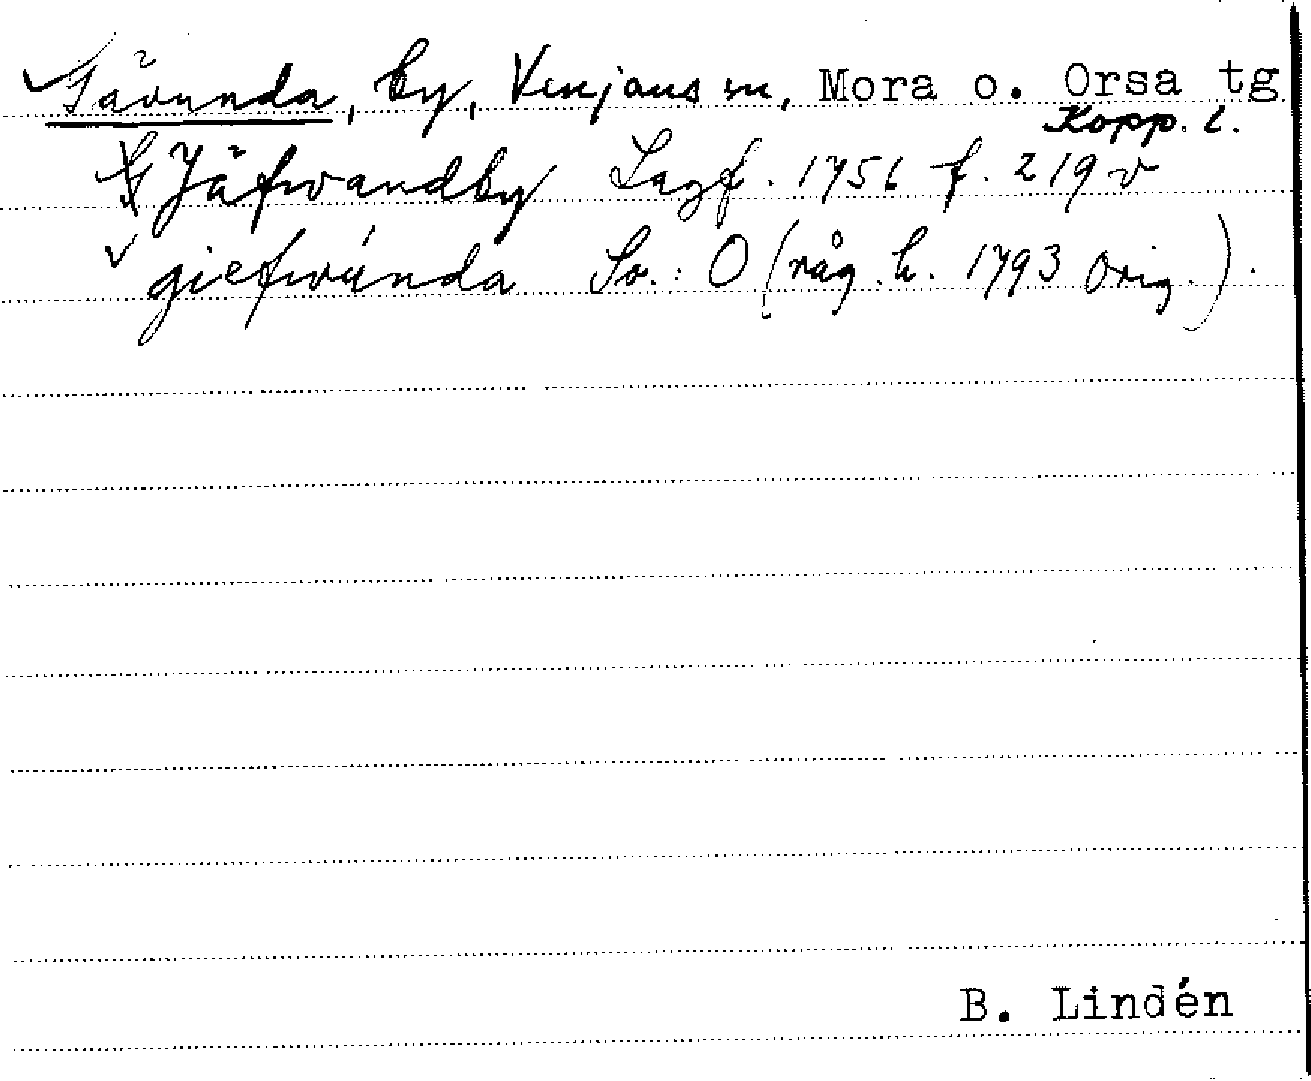 Gävunda, by, Venjans sn, Mora o. Orsa tg
Kopp. l.
Jäfwandby Lagf. 1756 f. 219 v
giefwúnda Sv.: O (råg. h. 1793 Orig.).
B. Lindén